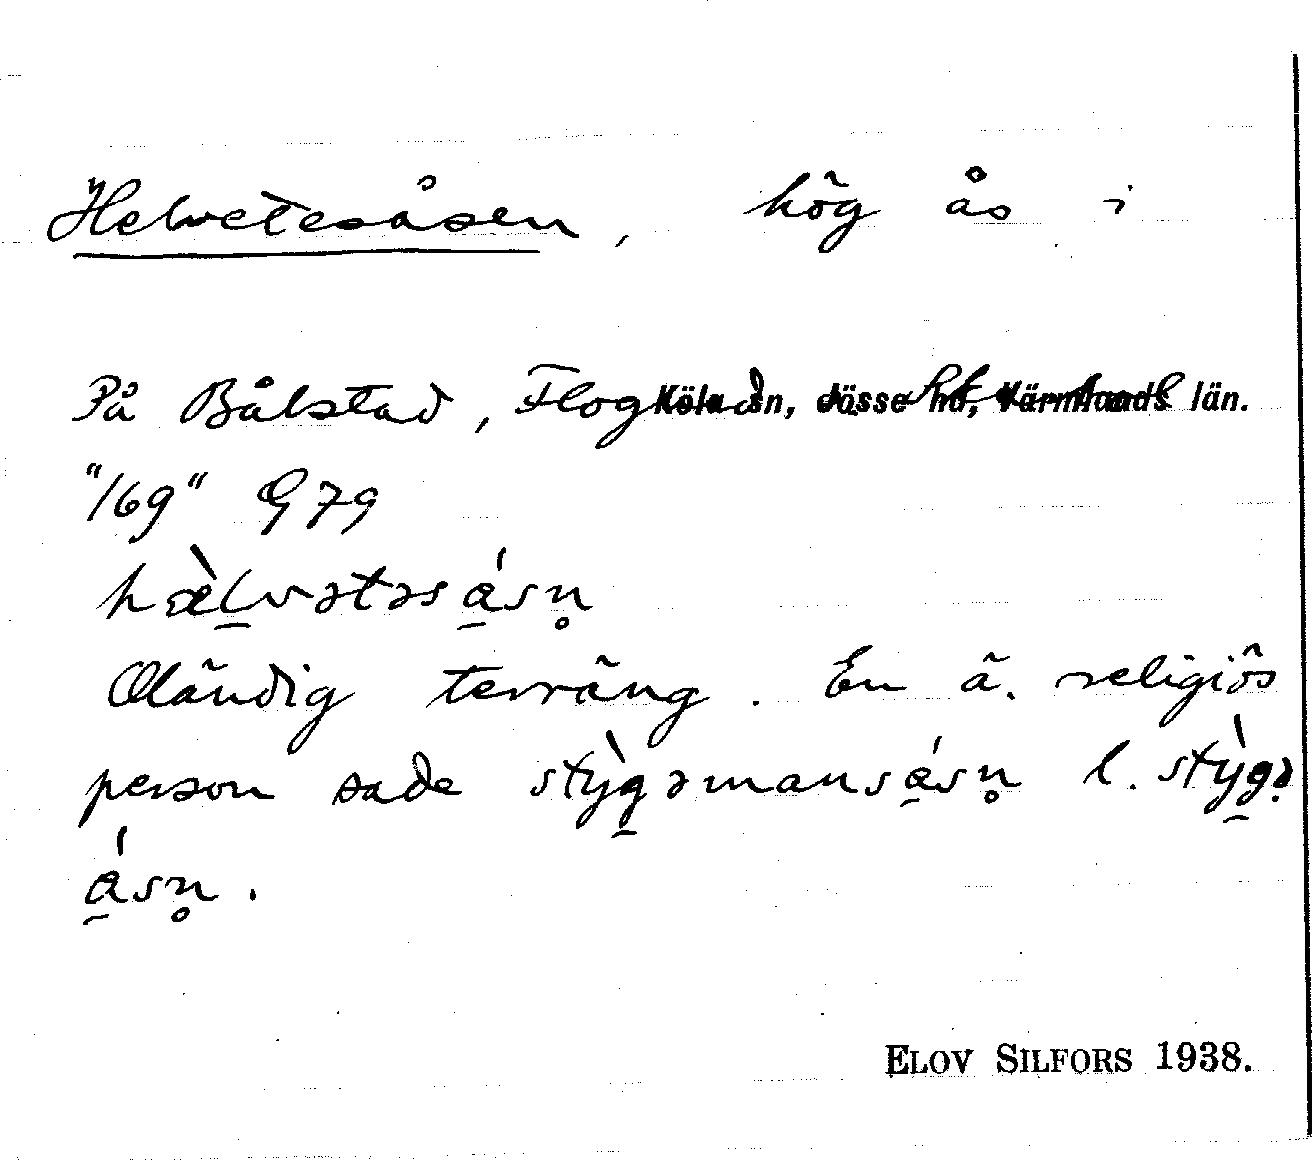 Helvetesåsen, hög ås i
På Bålstad, Flog Köla sn, Jösse hd, Värmlands län.
"/69" G79
hæ̀l̠vətəsá̠sn̥
Oländig terräng. En ä. religiös
person sade stỳg̠əmansá̠sn̥ l. stỳg̠ə
á̠sn̥.
ELOV SILFORS 1938.